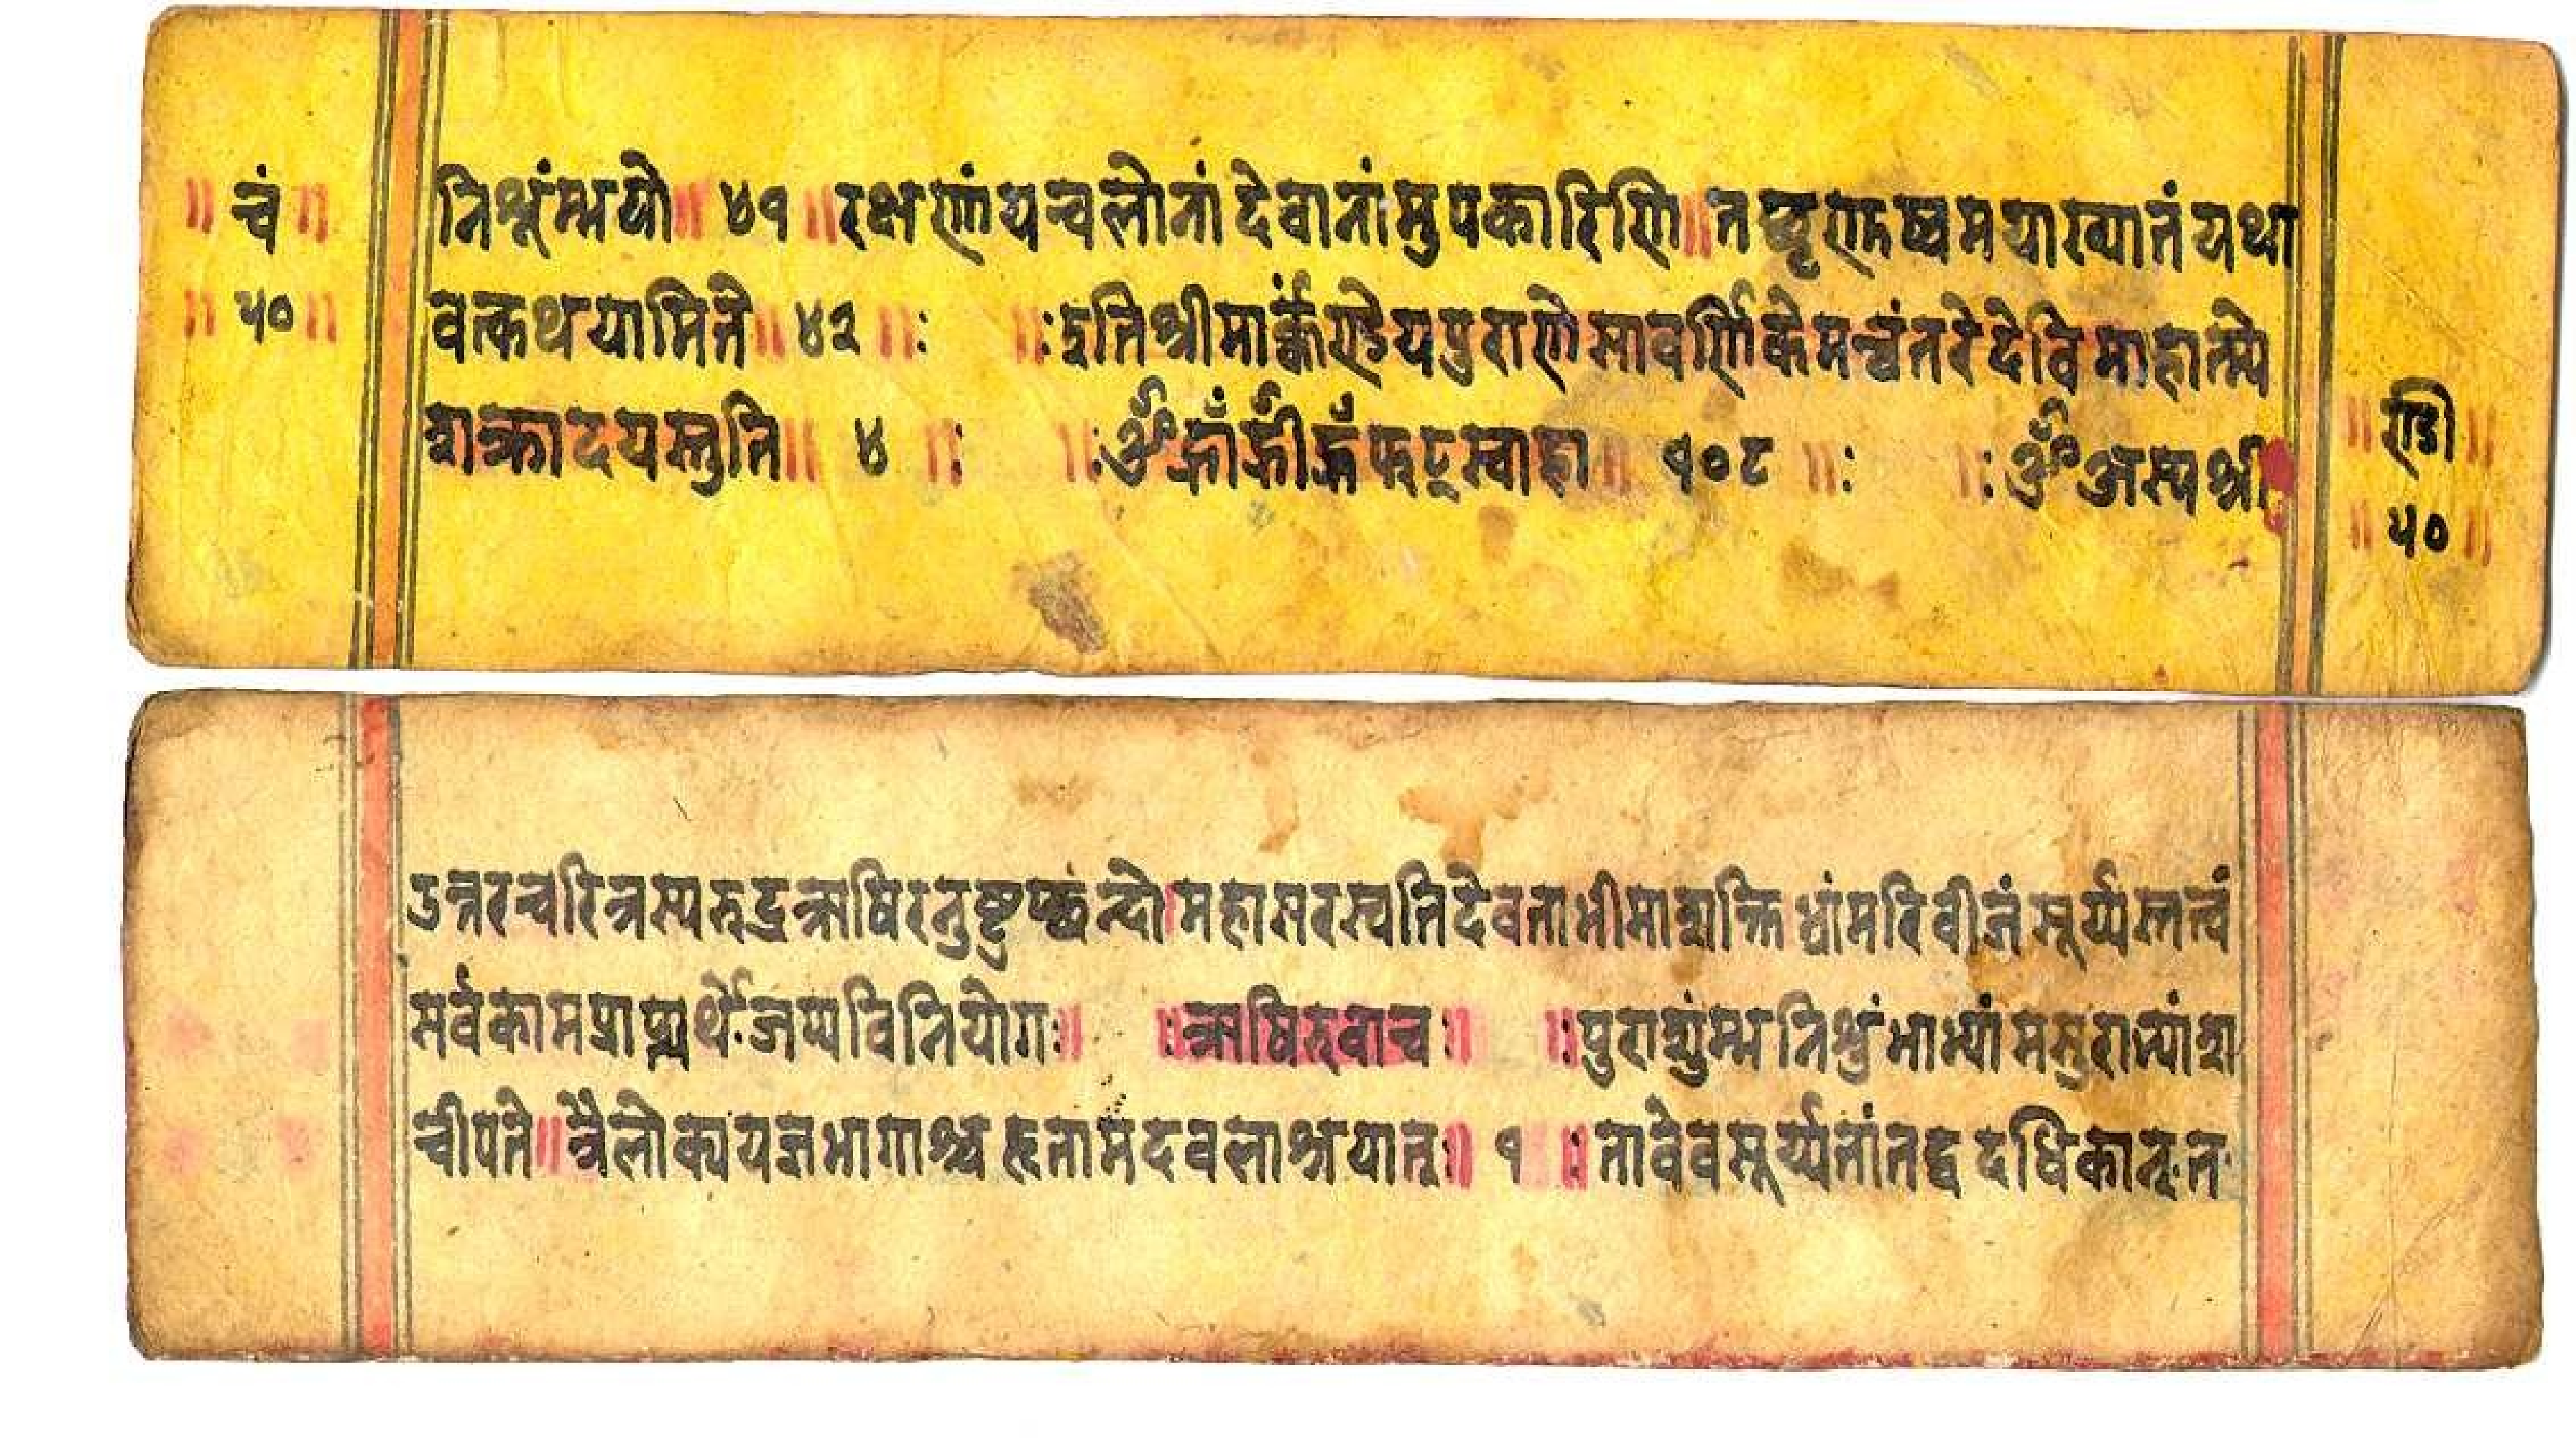 ॥ चं ॥
॥ ५० ॥
निशूंम्भयो ॥ ४१ ॥ रक्षणंयचलोनां देवानांमुपकारिणि ॥ तछृणुष्वमयाख्यातं यथा
वत्कथयामिते ॥ ४२ ॥ : ॥ : इतिश्रीमार्क्कण्डेयपुराणे सावर्णिके मन्वंतरे देविमाहात्म्ये
शक्रादयस्तुति ॥ ४ ॥ : ॥ : ॐ ह्राँ ह्रीँ ह्रूँ फट्स्वाहा ॥ १०८ ॥ : ॥ : ॐ अस्य श्री
॥ ण्डी ॥
॥ ५० ॥
उत्तरचरित्रस्य रुद्रऋषिरनुष्टुप्छन्दो । महासरस्वतिदेवता भीमाशक्ति भ्रांमरिवीजं सूर्य्यस्तत्वं
सर्वकामप्राप्त्यर्थेः जप्यविनियोगः ॥ ॥ : ऋषिरुवाच : ॥ ॥ : पुराशुंम्भ निशुंभाभ्यां मसुराभ्यांशा
चीपते ॥ त्रैलोक्ययज्ञभागाश्च हृतामदवलाश्रयात् : ॥ १ ॥ : तावेवसूर्य्यतांतद्वदधिकान्त